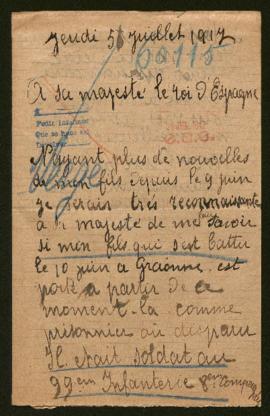 Jeudi 5 Juillet 1917
60115
A sa majesté le roi d'Espagne
Pedir informes
Que se haga
N'ayant plus de nouvelles
de mon fils depuis le 9 juin
je serais très reconnaissante
à sa majesté de me faire savoir
si mon fils qui s'est battu
le 10 juin à Craonne est
porté a partir de ce
moment-la comme
prisonnier ou disparu
Il était soldat au
99em Infanterie 8em Compagnie